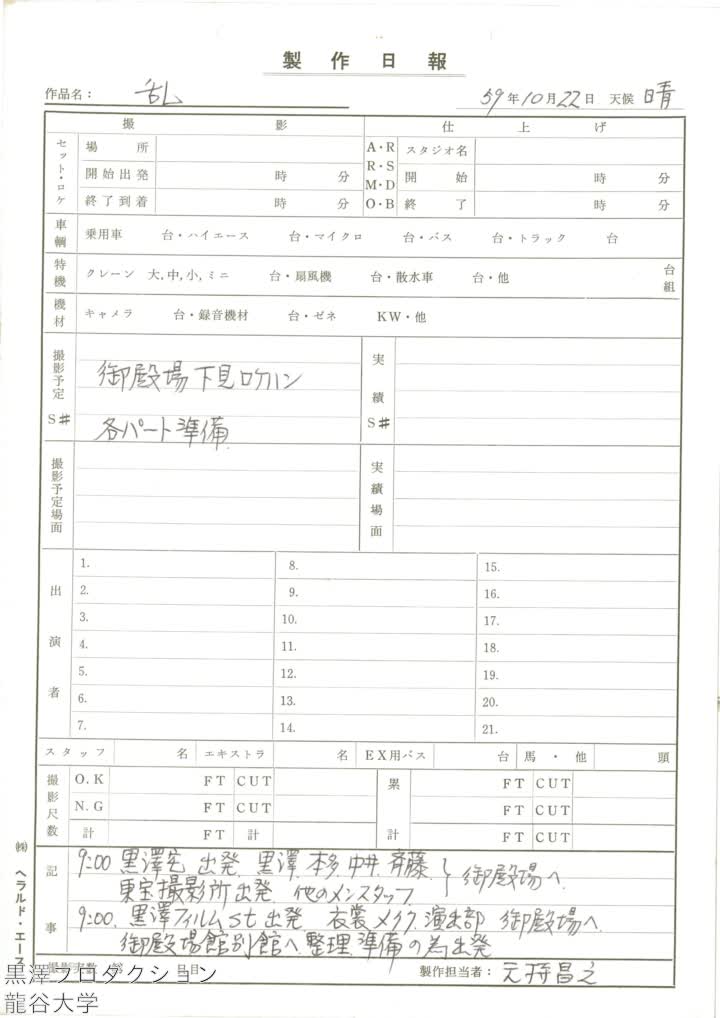 製作日報
作品名： 乱 59年10月22日 天候 晴
撮影 仕上げ
セット・ロケ 場所 A・R スタジオ名
開始出発 時 分 R・S 開始 時 分
終了到着 時 分 M・D O・B 終了 時 分
車輌 乗用車 台・ハイエース 台・マイクロ 台・バス 台・トラック 台
特機 クレーン 大,中,小,ミニ 台・扇風機 台・散水車 台・他 台組
機材 キャメラ 台・録音機材 台・ゼネ KW・他
撮影予定 S# 御殿場下見ロケハン 実績 S#
各パート準備
撮影予定場面 実績場面
出演者 1. 8. 15.
2. 9. 16.
3. 10. 17.
4. 11. 18.
5. 12. 19.
6. 13. 20.
7. 14. 21.
スタッフ 名 エキストラ 名 EX用バス 台 馬・他 頭
撮影尺数 O.K FT CUT 累計 FT CUT
N.G FT CUT FT CUT
計 FT 計 FT CUT
記事 9:00 黒澤宅 出発、黒澤、本多、中井、斉藤
東宝撮影所出発 他のメンスタッフ } 御殿場へ
9:00、黒澤フィルムst出発 衣裳メイク、演出部 御殿場へ
御殿場館別館へ整理、準備の為出発
製作担当者：
㈱ ヘラルド・エース
黒澤プロダクション
龍谷大学